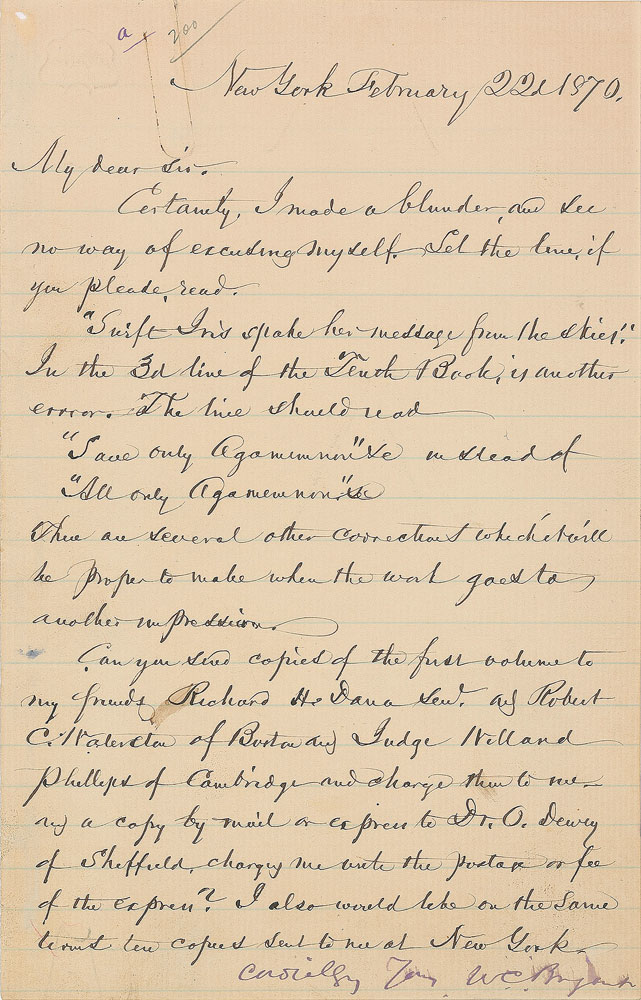 a 200
New York February 22d 1870.
My dear sir.
Certainly, I made a blunder, and see
no way of excusing myself. Let the line, if
you please, read.
"Swift Iris spake her message from the skies".
In the 3d line of the Tenth Book, is another
error. The line should read
"Save only Agamemnon" &c instead of
"All only Agamemnon" &c
There are several other corrections which it will
be proper to make when the work goes to
another impression.
Can you send copies of the first volume to
my friends, Richard H. Dana Senr. and Robert
C. Waterston of Boston and Judge Willard
Phillips of Cambridge and charge them to me—
and a copy by mail or express to Dr. O. Dewey
of Sheffield, charging me with the postage or fee
of the express? I also would like on the same
terms ten copies sent to me at New York.
Cordially Yours W. C. Bryant